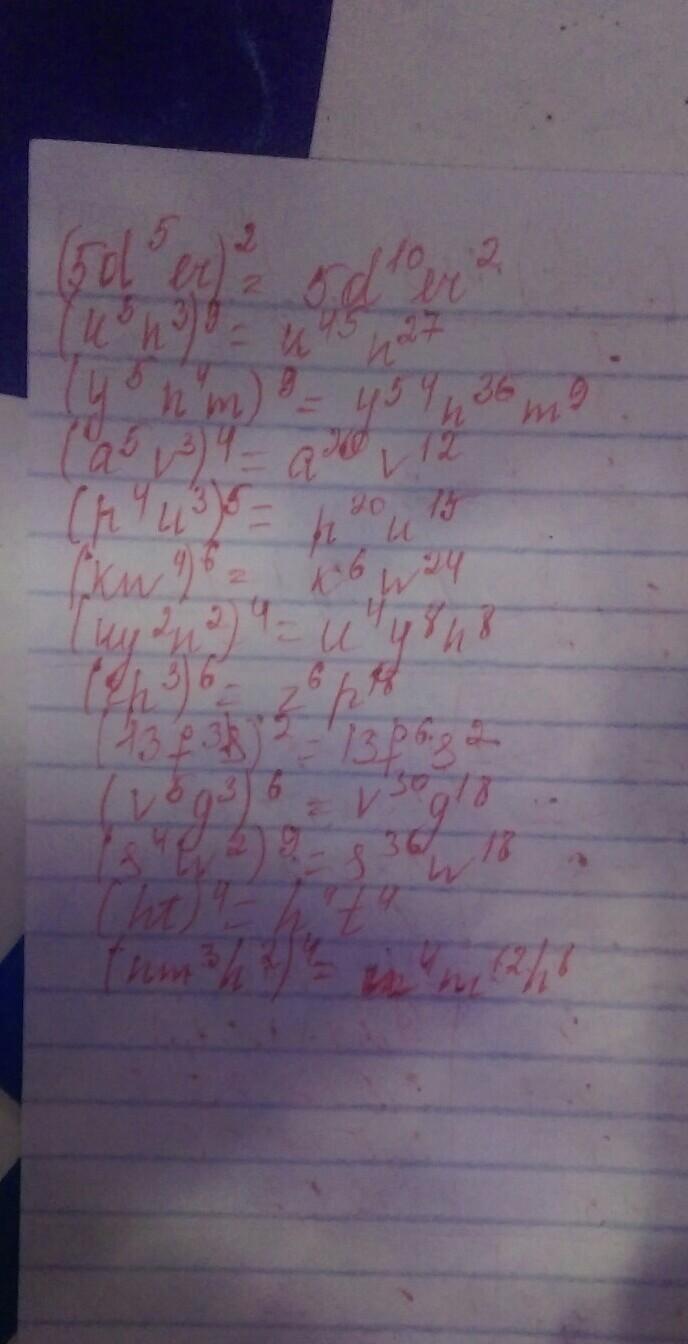 (5d⁵er)² = 5d¹⁰er²
(u⁵n³)⁹ = u⁴⁵n²⁷
(y⁵n⁴m)⁹ = y⁵⁴n³⁶m⁹
(a⁵v³)⁴ = a²⁰v¹²
(p⁴u³)⁵ = p²⁰u¹⁵
(xw⁴)⁶ = x⁶w²⁴
(uy²n²)⁴ = u⁴y⁸n⁸
(zp³)⁶ = z⁶p¹⁸
(13f³s)² = 13f⁶s²
(v⁵g³)⁶ = v³⁰g¹⁸
(s⁴w²)⁹ = s³⁶w¹⁸
(ht)⁴ = h⁴t⁴
(nm³h²)⁴ = n⁴m¹²h⁸